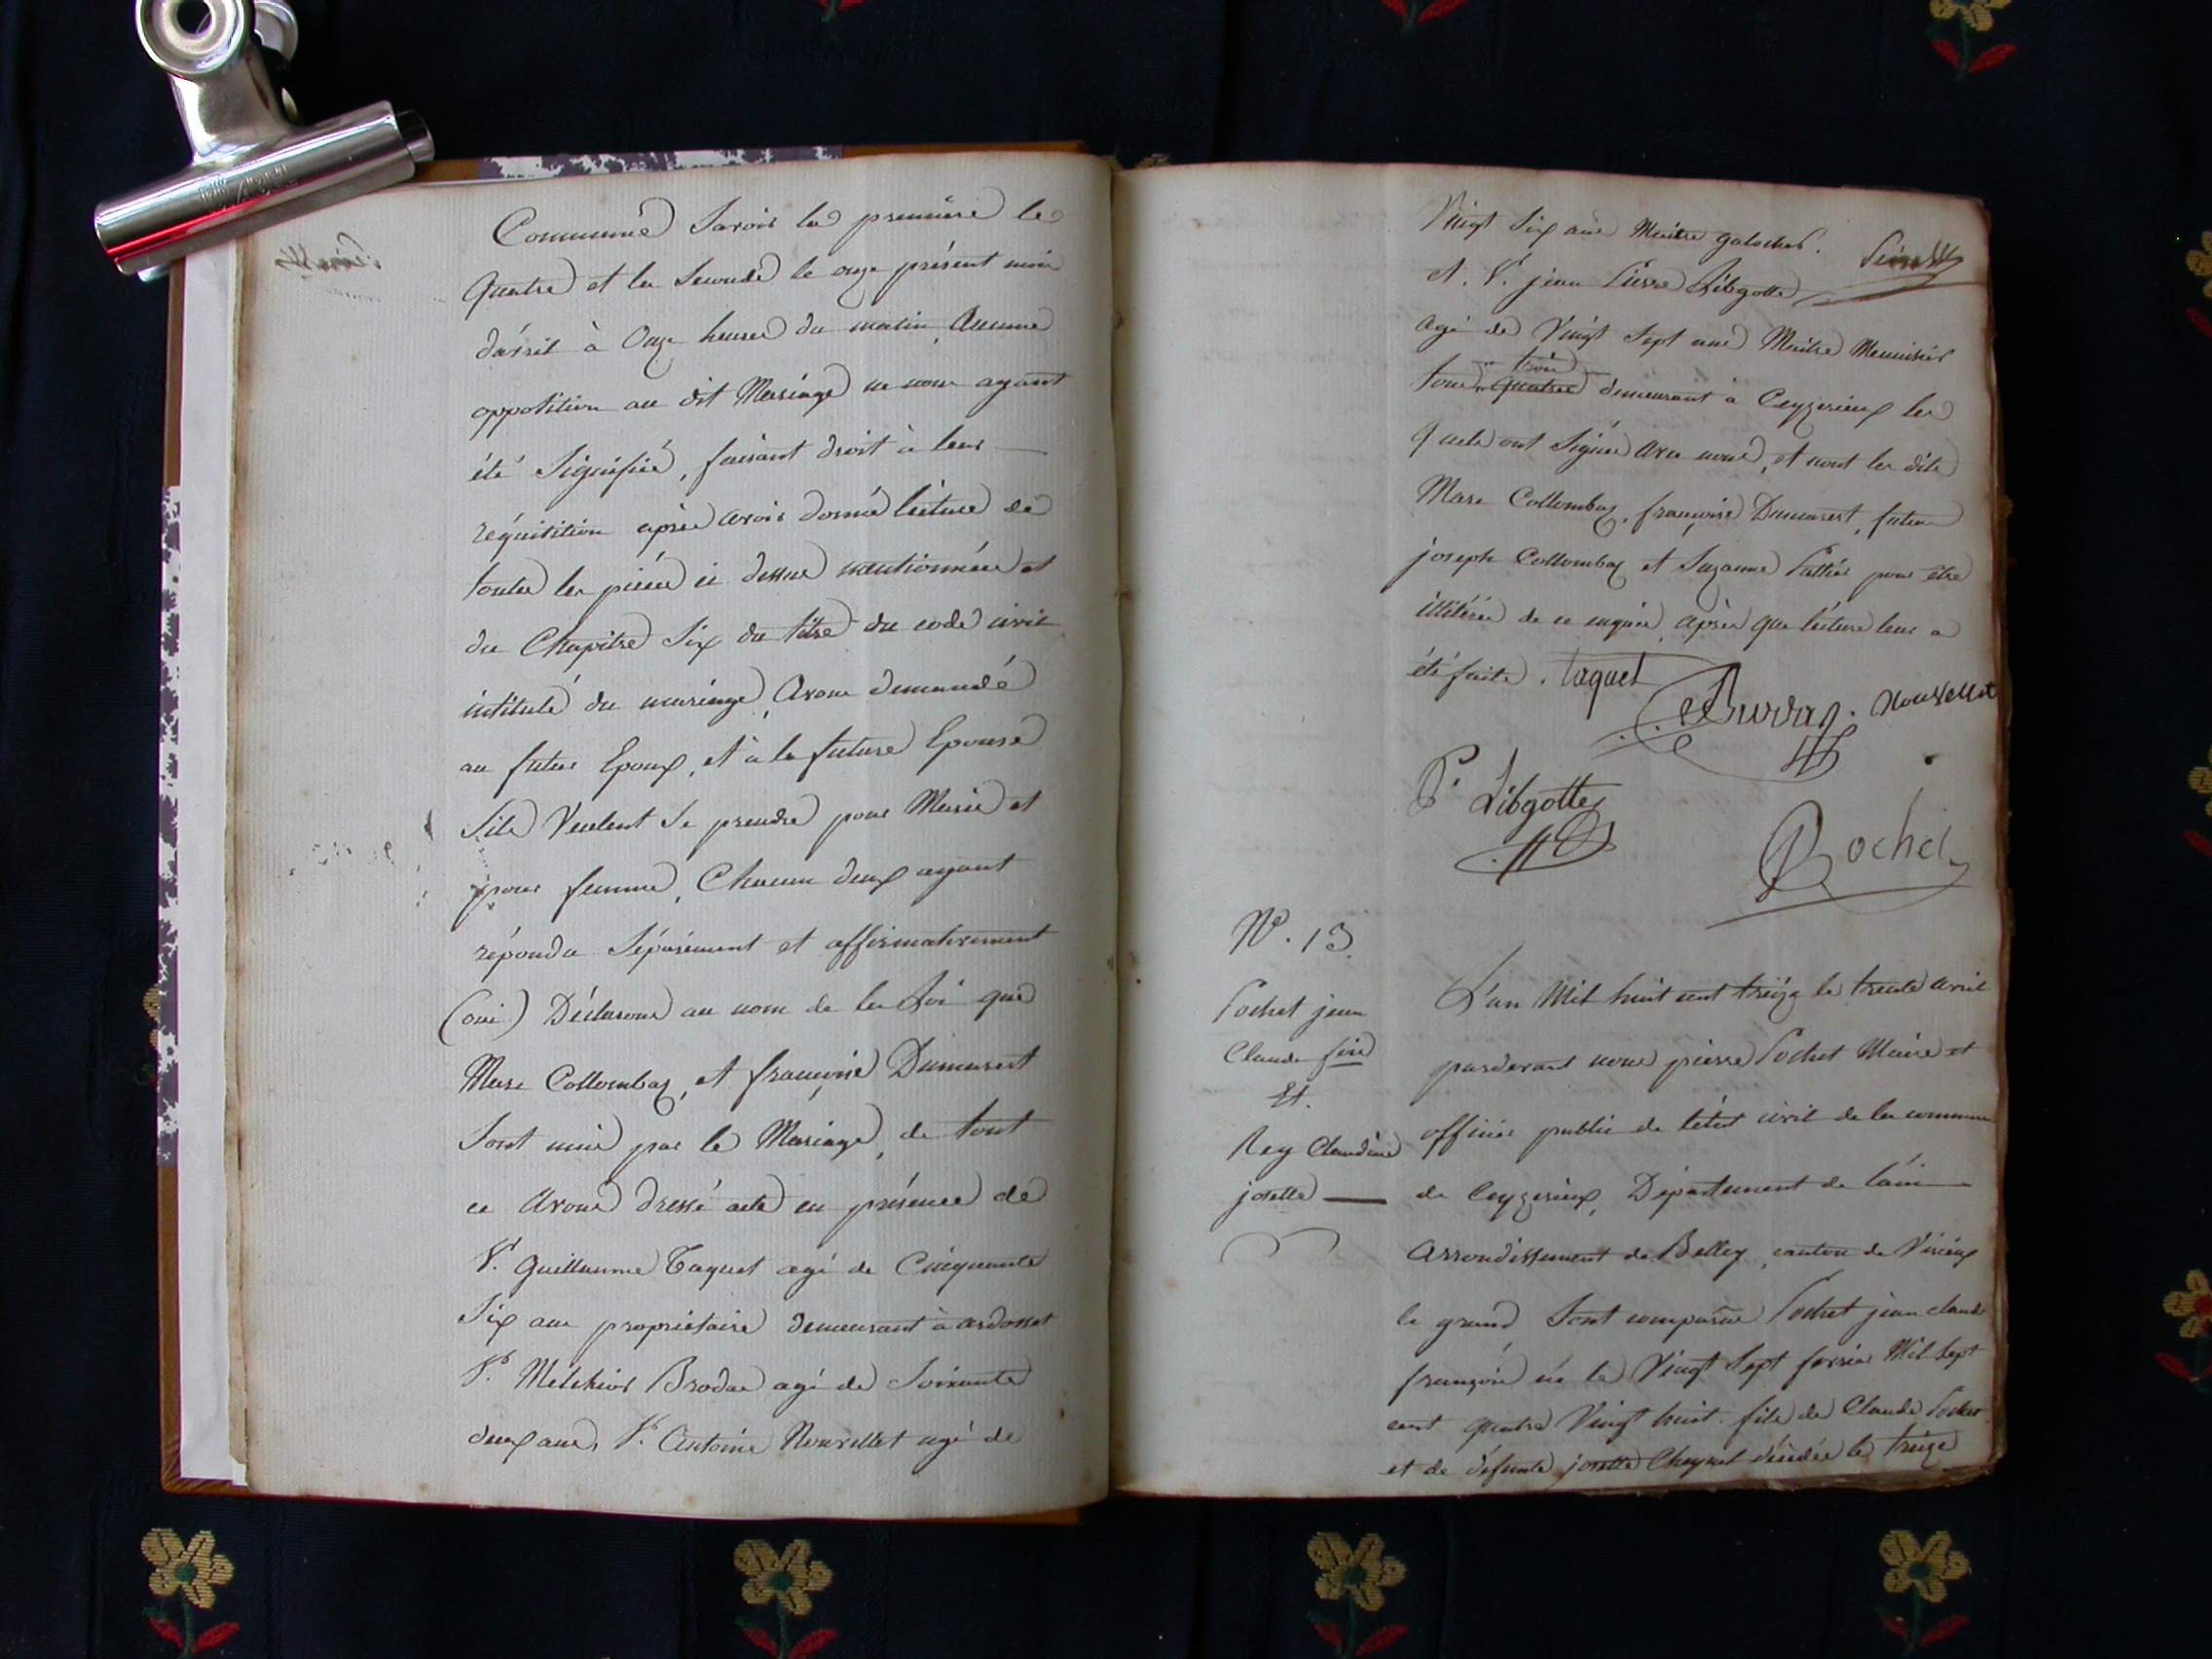 Commune Savoir la première le
Quatre et la Seconde le onze présent mois
d'avril à Onze heures du matin, Aucune
opposition au dit Mariage ne nous ayant
été Signifiée, faisant droit à leur
réquisition après avoir donné lecture de
toutes les pièces ci dessus mentionnées et
du Chapitre Six du titre du code civil
intitulé du mariage, Avons demandé
au futur Epoux, et à la future Epouse
Sils Veulent Se prendre pour Mari et
pour femme, Chacun deux ayant
répondu Séparément et affirmativement
(oui) Déclarons au nom de la Loi que
Marc Collombaz, et françoise Dumarest
Sont unis par le Mariage, de tout
ce Avons dressé acte en présence de
Sr. Guillaume Taquet agé de Cinquante
Six ans propriétaire demeurant à ardosset
Sr. Melchior Brodaz agé de Soixante
deux ans, Sr. Antoine Nouvellet agé de
Vingt Six ans Maitre galochet.
et. Sr. jean Pierre Libgotte
agé de Vingt Sept ans Maitre Menuisier
trois
tous quatre demeurant à Ceyzerieux les
quels ont Signés avec nous, et nont les dits
Marc Collombaz, françoise Dumarest, futurs
joseph Collombaz et Suzanne Pattier pour être
illitérés de ce enquis, après que lecture leur a
été faite. taquet
Nouvellet
P. Libgotte
Pochet
No. 13.
Pochet jean
Claude fois
Et.
Rey Claudine
josette
L'an Mil huit cent treize le trente avril
pardevant nous pierre Pochet Maire et
officier public de létat civil de la commune
de Ceyzerieux, Département de lain
Arrondissement de Belley, canton de Virieux
le grand Sont comparus Pochet jean claude
françois né le Vingt Sept fevrier Mil Sept
cent quatre Vingt huit. fils de Claude Pochet
et de défunte josette Cheynet décédée le treize